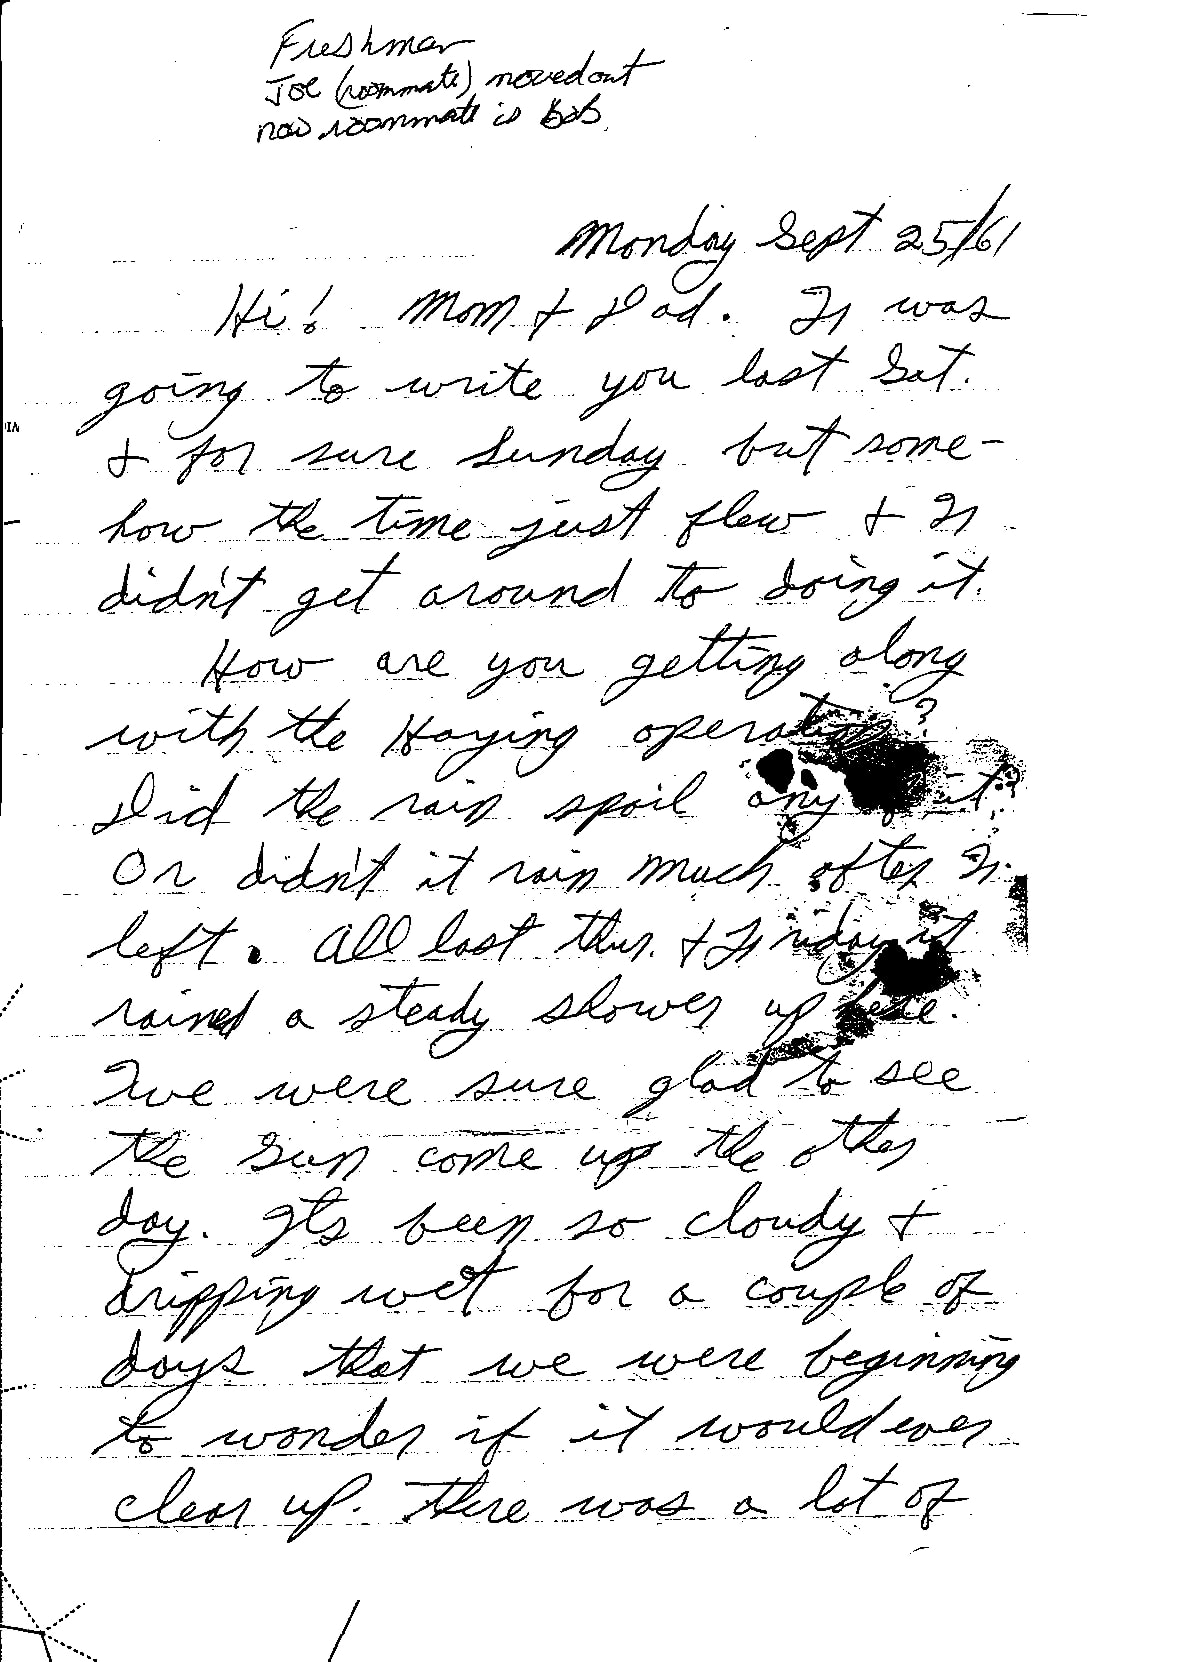 Freshman
Joe (roommate) moved out
now roommate is Bob.
Monday Sept 25/61
Hi! Mom & Dad. I was
going to write you last Sat.
& for sure Sunday but some-
how the time just flew & I
didn't get around to doing it.
How are you getting along
with the Haying operation?
Did the rain spoil any of it?
Or didn't it rain much after I
left. All last Thur. & Friday it
rained a steady slower up here.
We were sure glad to see
the Sun come up the other
day. Its been so cloudy &
dripping wet for a couple of
days that we were beginning
to wonder if it would ever
clear up. There was a lot of
1